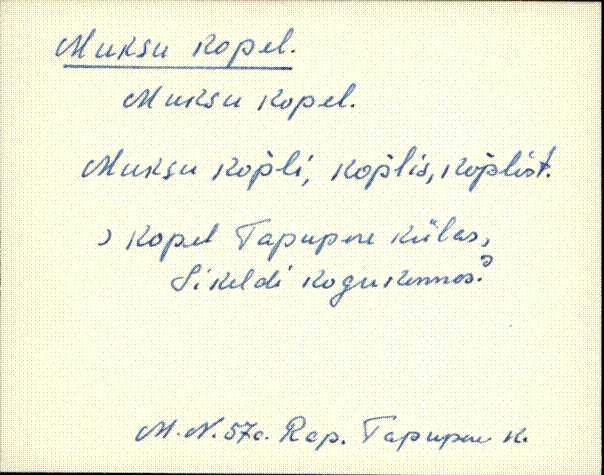 Muksu Kopel.
Muksu Kopel.
Muksu Kop̆li, Kop̆lis, Kop̆list.
) Kopel Tapupere külas,
Sikeldi kogukonnas?
M.N. 57a. Rap. Tapupere k.